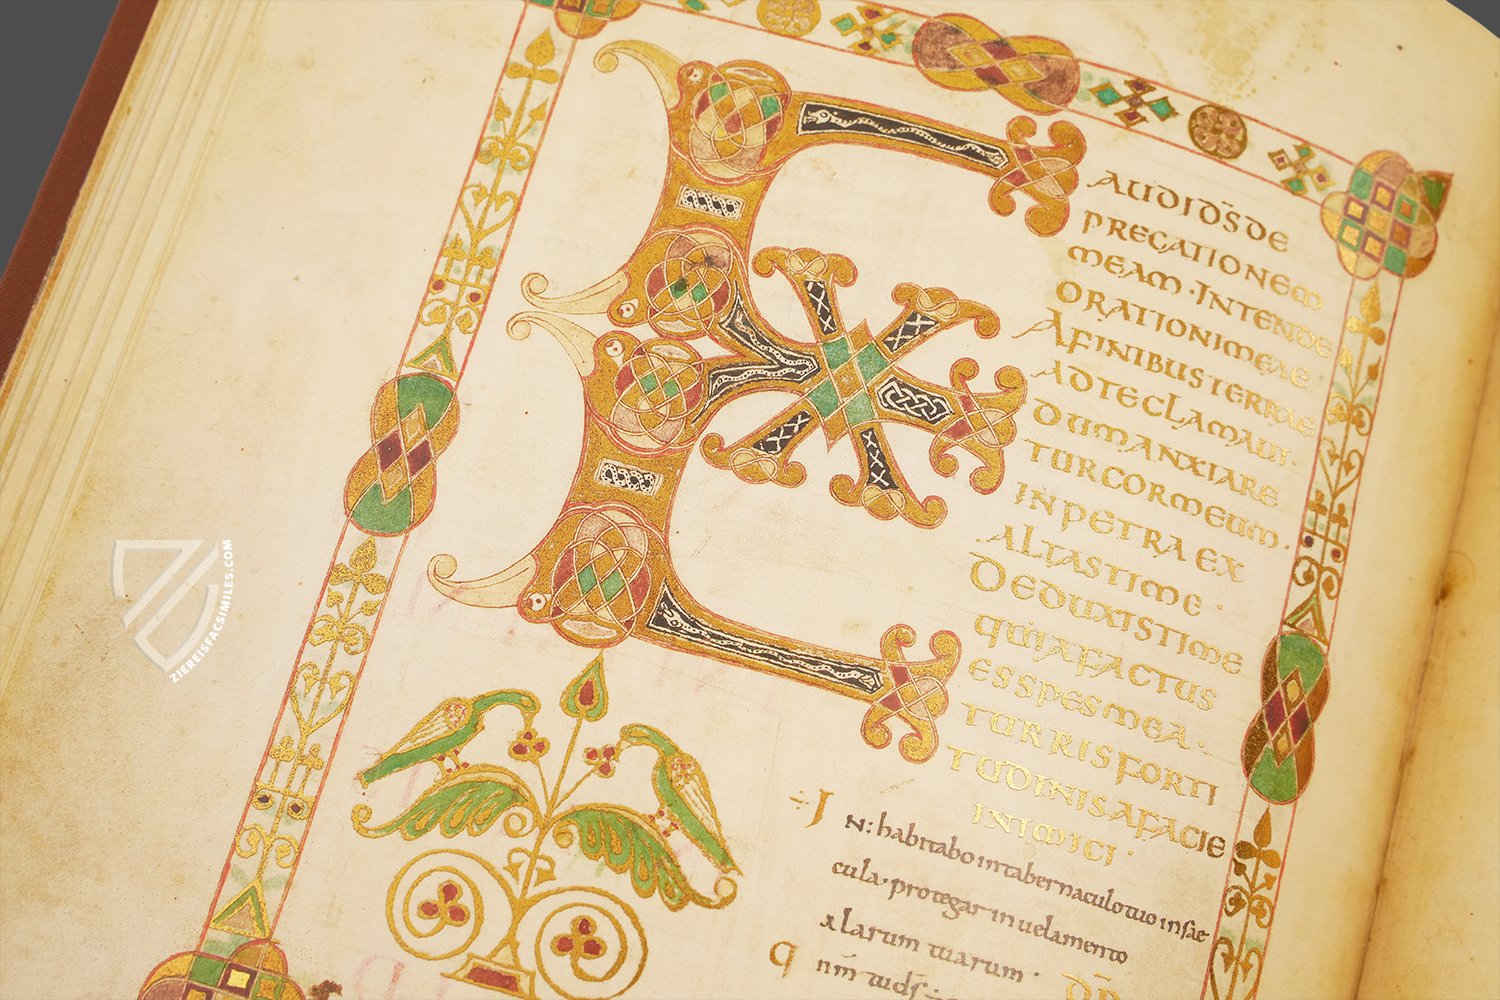 E
XAUDI D̅S̅ DE
PRECATIONEM
MEAM · INTENDE
ORATIONI MEAE
A FINIBUS TERRAE
AD TE CLAMAVI ·
DUM ANXIARE
TUR COR MEUM ·
IN PETRA EX
ALTASTI ME ·
DEDUXISTI ME
QUIA FACTUS
ES SPES MEA ·
TURRIS FORTI
TUDINIS A FACIE
INIMICI ·
÷ I N: habitabo in tabernaculo tuo in sae
cula · protegar in uelamento
alarum tuarum ·
q nm̅ tu
ZIEREISFACSIMILES.COM